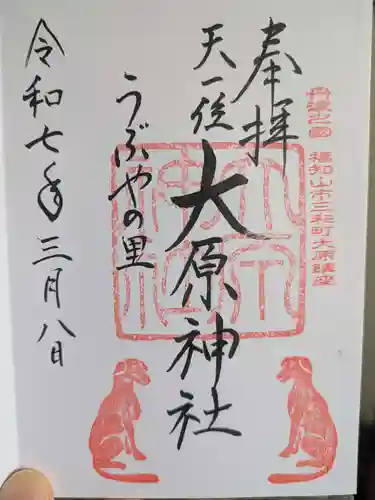 奉拝
丹波之國 福知山市三和町大原鎮座
天一位
大原神社
うぶやの里
令和七年三月八日